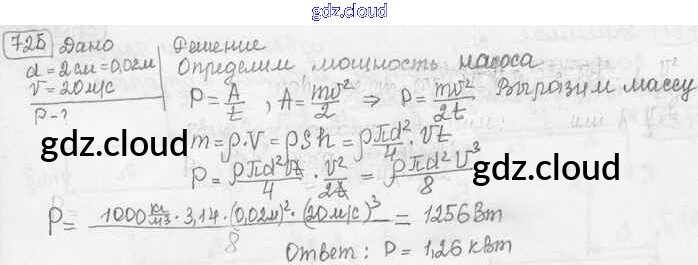 gdz.cloud
725 Дано
d = 2 см = 0,02 м
v = 20 м/с
P - ?
Решение
Определим мощность насоса
P = A/t , A = mv²/2 ⇒ P = mv²/2t Выразим массу
m = ρ·V = ρSh = ρ πd²/4 · vt
P = ρπd²vt/4 · v²/2t = ρπd²v³/8
gdz.cloud
gdz.cloud
P = 1000 кг/м³ · 3,14 · (0,02м)² · (20м/с)³ / 8 = 1256 Вт
Ответ: P = 1,26 кВт
gdz.cloud
gdz.cloud